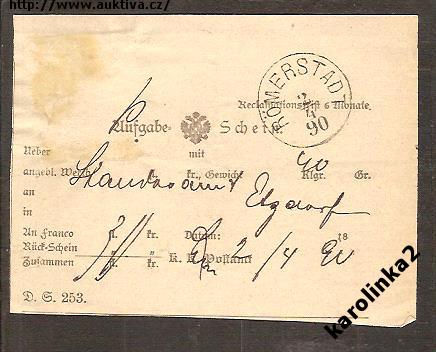 http://www.auktiva.cz/
RÖMERSTADT
2
4
90
Reclamationsfrist 6 Monate.
Aufgabs- Schein
Ueber mit 90
angebl. Werth fl. kr., Gewicht Klgr. Gr.
an
in Etzdorf
An Franco fl. kr. Datum: 18
Rück-Schein fl. kr. 2/4 90
Zusammen fl. kr. K. K. Postamt
D. S. 253.
karolinka2